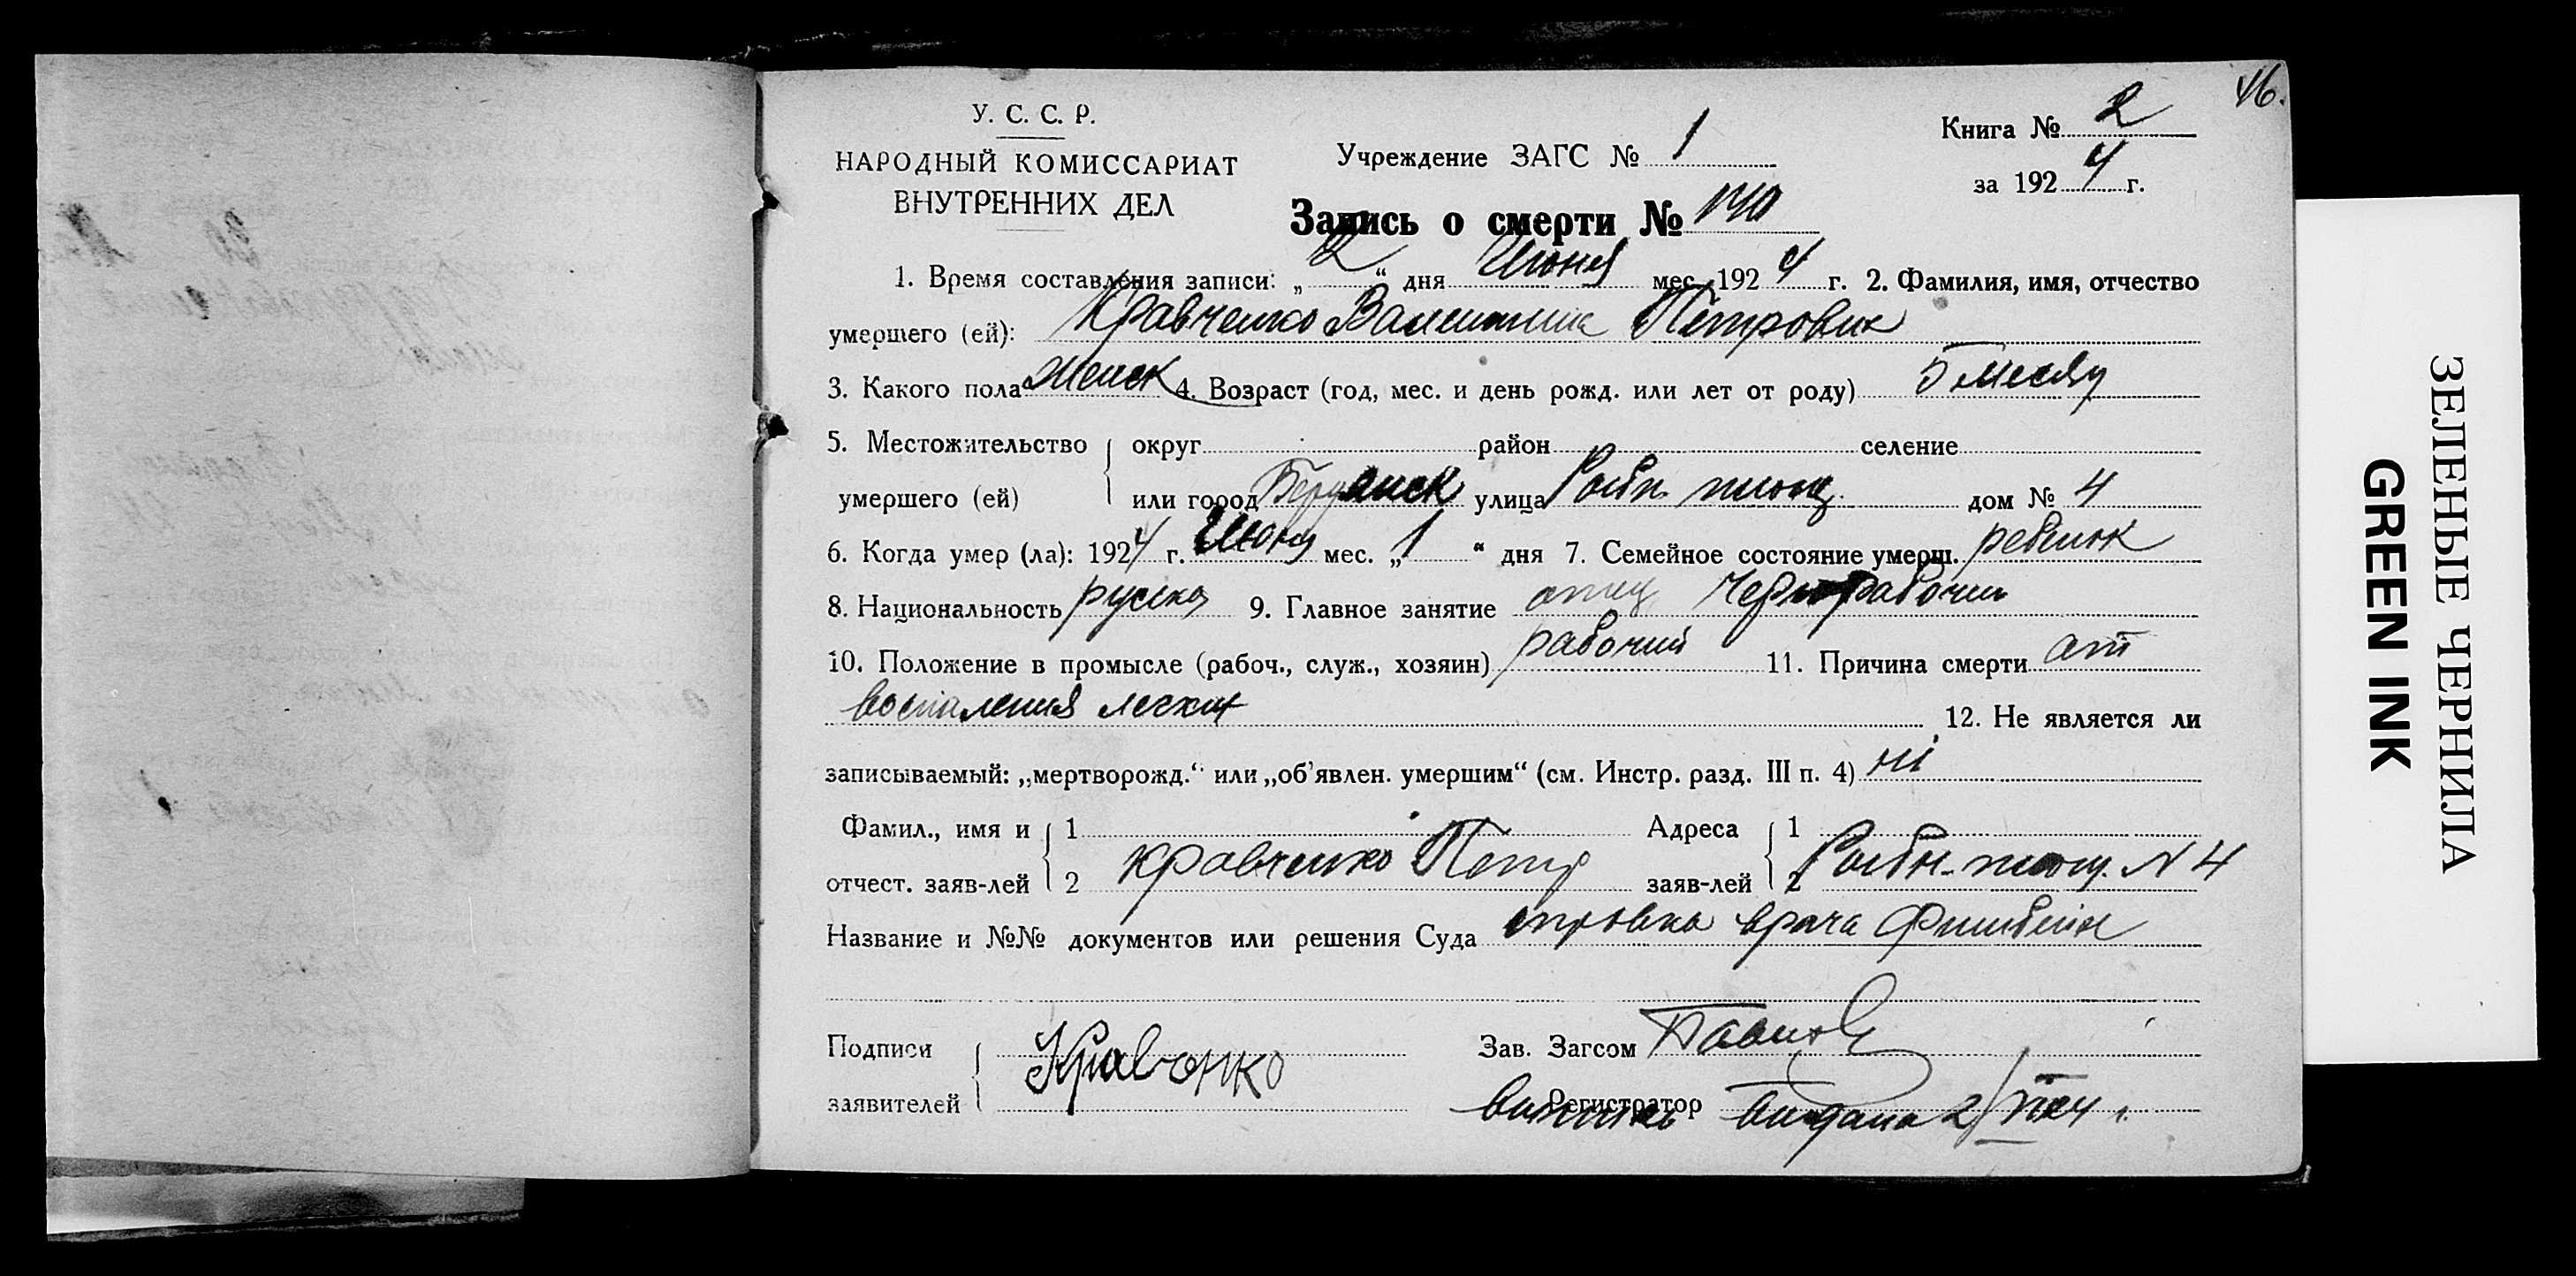 46.
У. С. С. Р.
НАРОДНЫЙ КОМИССАРИАТ
ВНУТРЕННИХ ДЕЛ
Учреждение ЗАГС № 1
Книга № 2
за 1924 г.
Запись о смерти № 140
1. Время составления записи: „2“ дня Июня мес. 1924 г. 2. Фамилия, имя, отчество
умершего (ей): Кравченко Валентина Петровна
3. Какого пола женск 4. Возраст (год, мес. и день рожд. или лет от роду) 5 месяц
5. Местожительство округ район селение
умершего (ей) или город Бердянск улица площ. дом № 4
6. Когда умер (ла): 1924 г. Июня мес. „1“ дня 7. Семейное состояние умерш. ребенок
8. Национальность русская 9. Главное занятие отец Чернорабочий
10. Положение в промысле (рабоч., служ., хозяин) рабочий 11. Причина смерти от
воспаления легких 12. Не является ли
записываемый: „мертворожд.“ или „об’явлен. умершим“ (см. Инстр. разд. III п. 4) ні
Фамил., имя и 1 Адреса 1
отчест. заяв-лей 2 Кравченко Петр заяв-лей 2 площ. N 4
Название и №№ документов или решения Суда справка врача Фишбейн
Подписи Кравченко Зав. Загсом
заявителей Регистратор
выпись видана 2/VI 24 г.
ЗЕЛЕНЫЕ ЧЕРНИЛА
GREEN INK